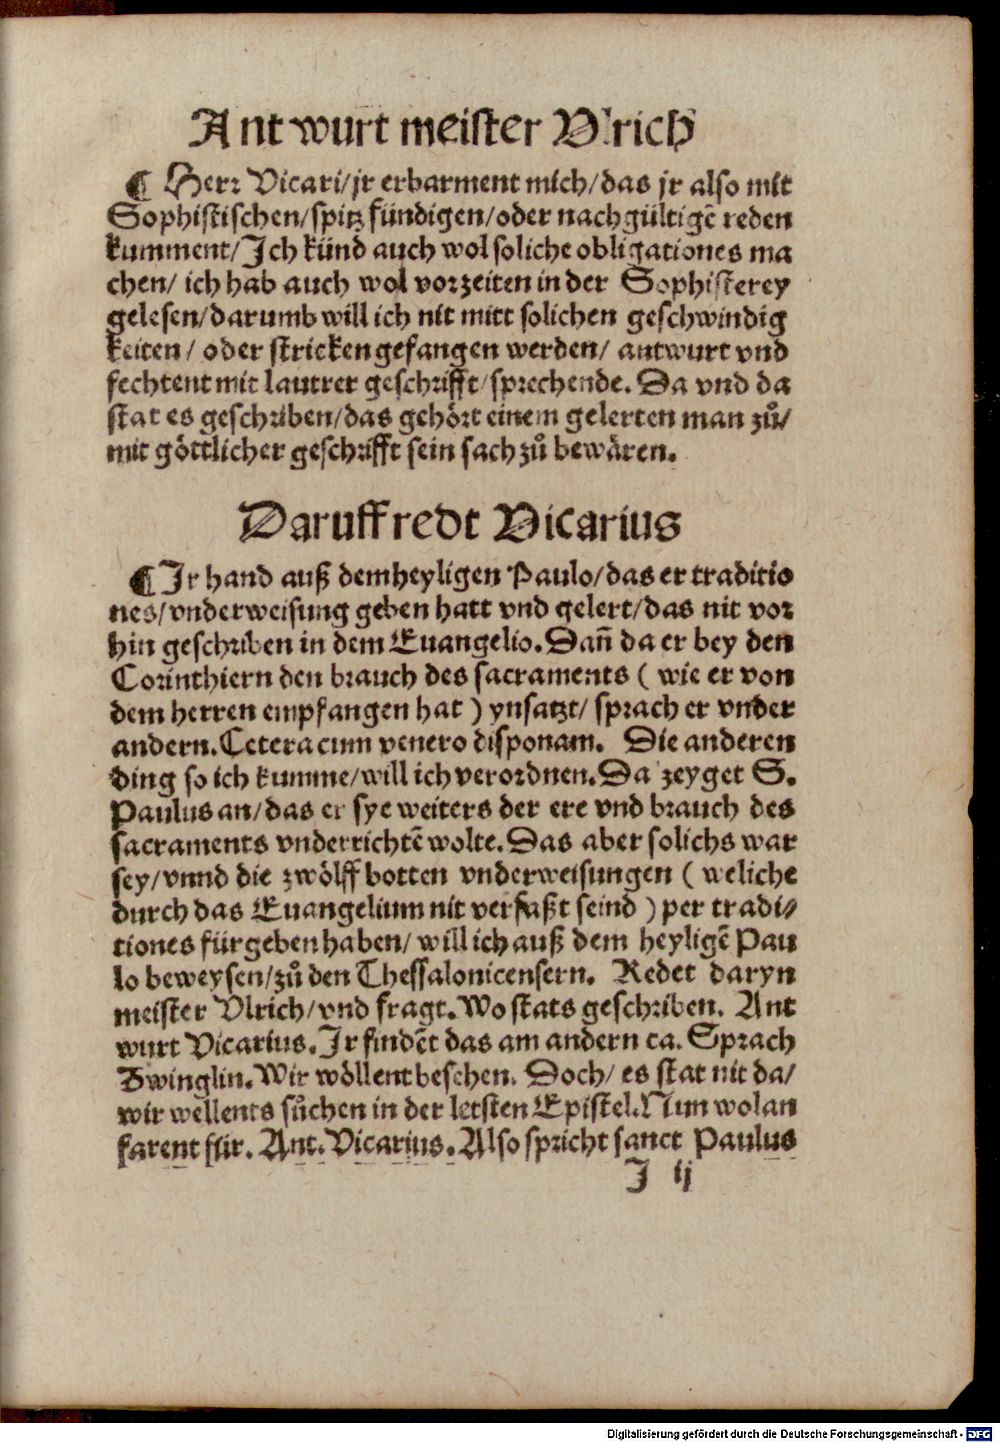 Antwurt meister Vlrich
¶ Herr Vicari/jr erbarment mich/das jr also mit
Sophistischen/spitz fündigen/oder nachgültigē reden
kumment/Ich künd auch wol soliche obligationes ma
chen/ ich hab auch wol vorzeiten in der Sophisterey
gelesen/darumb will ich nit mitt solichen geschwindig
keiten/ oder stricken gefangen werden/ antwurt vnd
fechtent mit lautrer geschrifft/sprechende. Da vnd da
stat es geschriben/das gehört einem gelerten man zů/
mit göttlicher geschrifft sein sach zů bewären.
Daruff redt Vicarius
¶ Ir hand auß dem heyligen Paulo/das er traditio
nes/vnderweisung geben hatt vnd gelert/das nit vor
hin geschriben in dem Euangelio. Dañ da er bey den
Corinthiern den brauch des sacraments ( wie er von
dem herren empfangen hat ) ynsatzt/ sprach er vnder
andern. Cetera cum venero disponam. Die anderen
ding so ich kumme/will ich verordnen. Da zeyget S.
Paulus an/das er sye weiters der ere vnd brauch des
sacraments vnderrichtē wolte. Das aber solichs war
sey/vnnd die zwölff botten vnderweisungen ( weliche
durch das Euangelium nit verfaßt seind ) per tradi/
tiones fürgeben haben/ will ich auß dem heyligē Pau
lo beweysen/zů den Thessalonicensern. Redet daryn
meister Vlrich/vnd fragt. Wo stats geschriben. Ant
wurt Vicarius. Ir findēt das am andern ca. Sprach
Zwinglin. Wir wöllent besehen. Doch/ es stat nit da/
wir wellents sůchen in der letsten Epistel. Nun wolan
farent für. Ant. Vicarius. Also spricht sanct Paulus
I ij
Digitalisierung gefördert durch die Deutsche Forschungsgemeinschaft - DFG